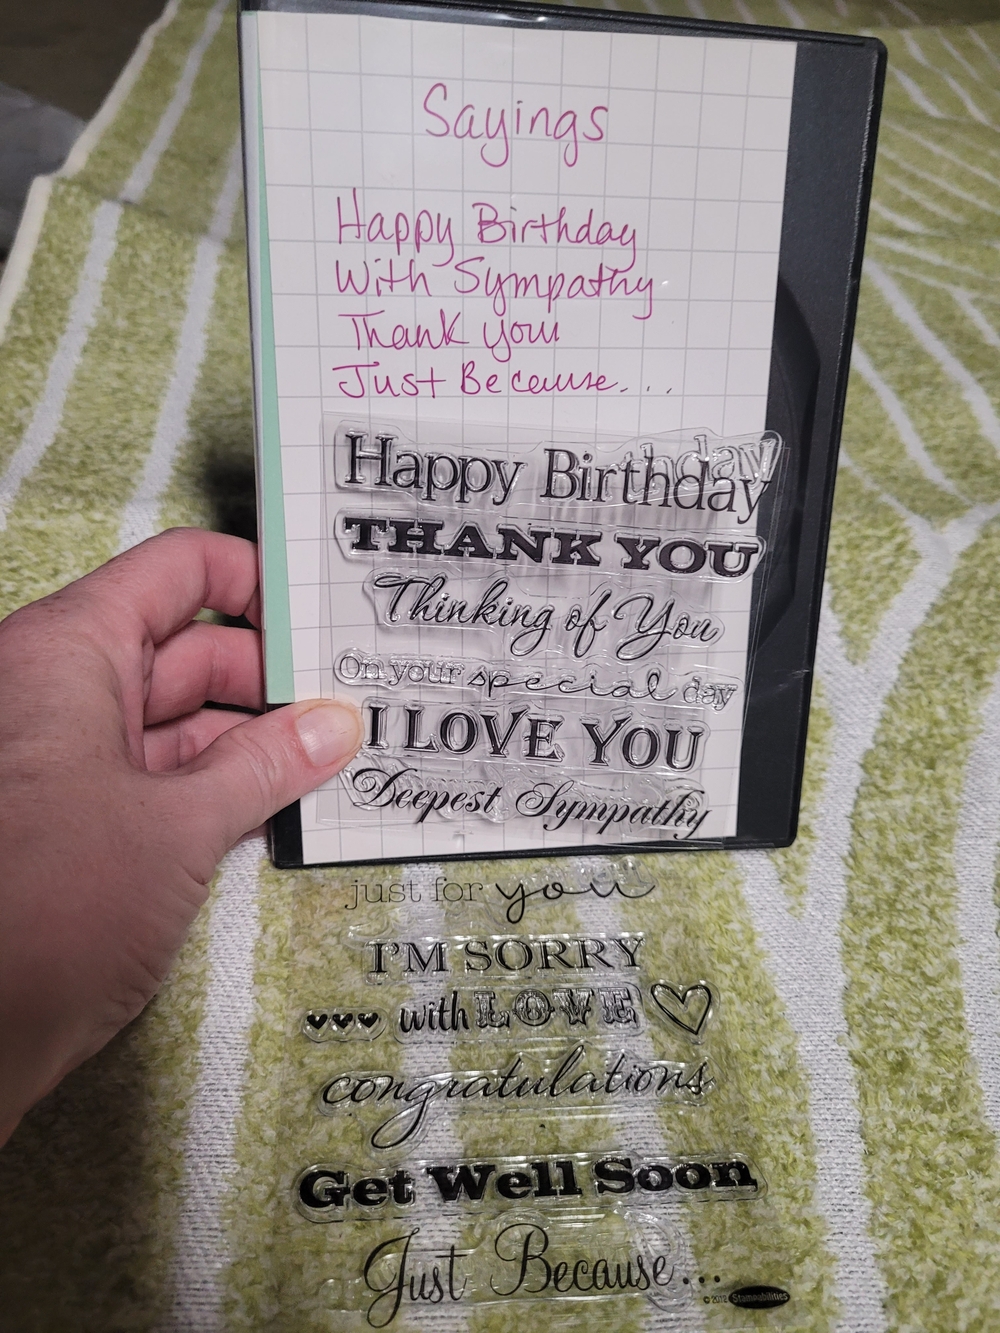 Sayings
Happy Birthday
With Sympathy
Thank you
Just Because...
Happy Birthday
THANK YOU
Thinking of You
On your special day
I LOVE YOU
Deepest Sympathy
just for you
I'M SORRY
with LOVE
congratulations
Get Well Soon
Just Because...
© 2012 Stampabilities